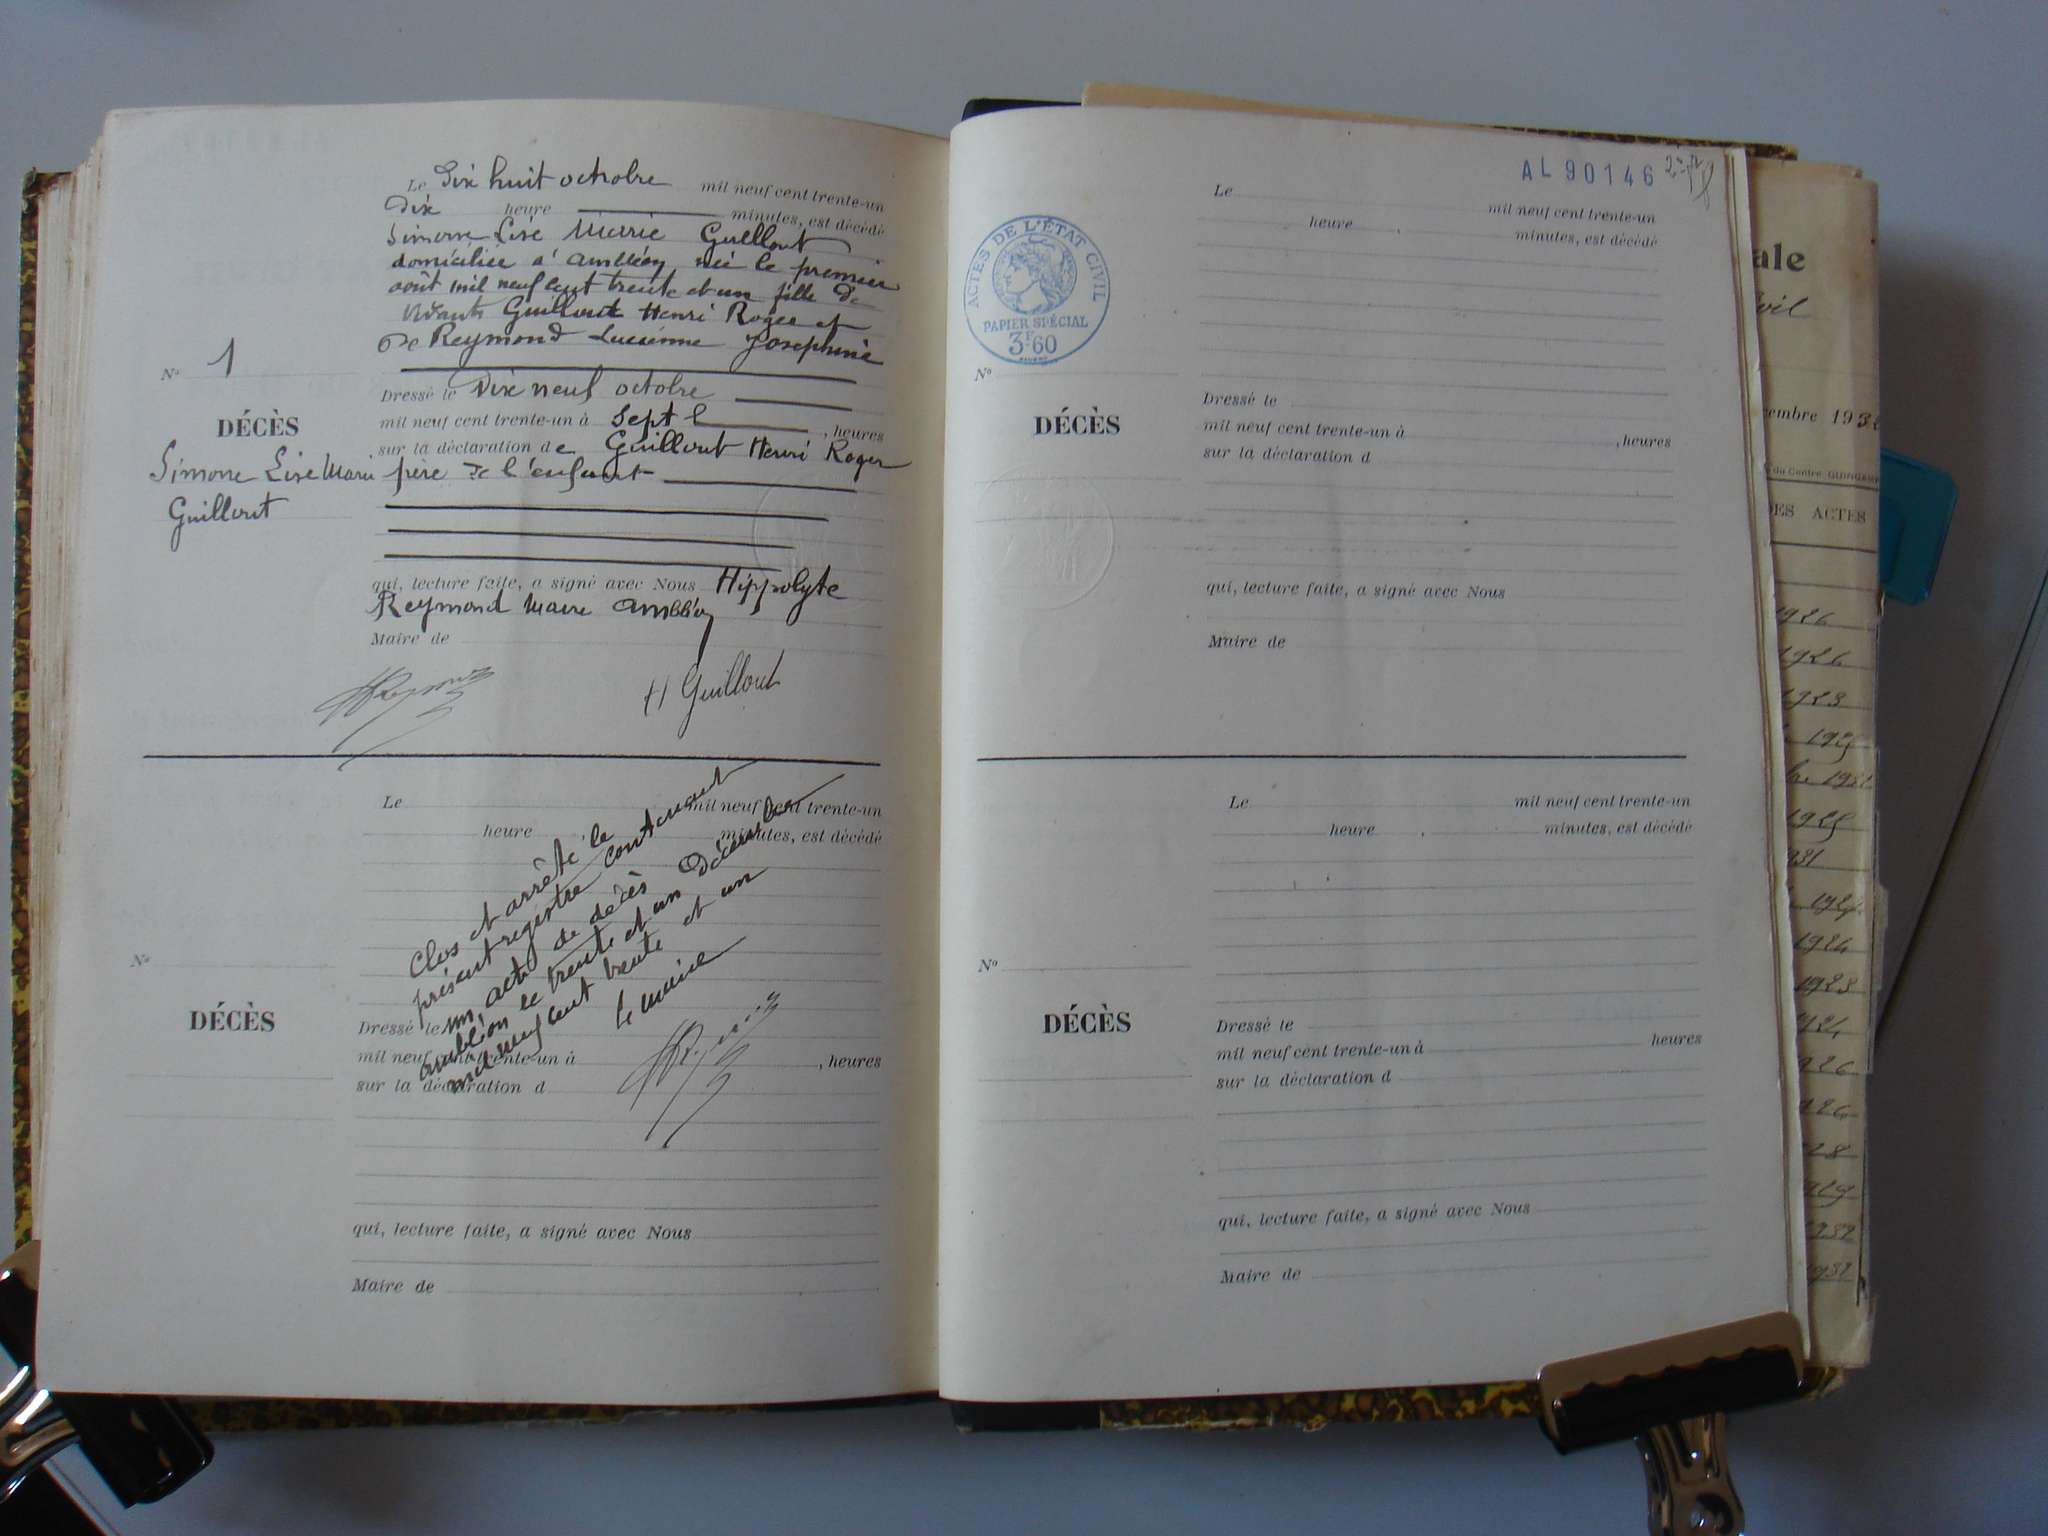 Le Dix huit octobre mil neuf cent trente-un
Dix heure minutes, est décédé
Simone Lise Marie Guillout
domiciliée à Ambléon née le premier
août mil neuf cent trente et un fille de
Guillout Henri Roger et
de Reymond Lucienne Josephine
N° 1
DÉCÈS
Simone Lise Marie
Guillout
Dressé le Dix neuf octobre
mil neuf cent trente-un à Sept , heures
sur la déclaration de Guillout Henri Roger
père de l'enfant
qui, lecture faite, a signé avec Nous Hippolyte
Reymond Maire Ambléon
Maire de
H Guillout
Le mil neuf cent trente-un
heure minutes, est décédé
N°
DÉCÈS
Clos et arrêté le
présent registre contenant
un, acte de décès
Ambléon le trente et un Décembre
mil neuf cent trente et un
Le maire
Dressé le
mil neuf cent trente-un à , heures
sur la déclaration d
qui, lecture faite, a signé avec Nous
Maire de
AL 90146
ACTES DE L'ÉTAT CIVIL
PAPIER SPÉCIAL
3F60
Le mil neuf cent trente-un
heure minutes, est décédé
N°
DÉCÈS
Dressé le
mil neuf cent trente-un à , heures
sur la déclaration d
qui, lecture faite, a signé avec Nous
Maire de
Le mil neuf cent trente-un
heure minutes, est décédé
N°
DÉCÈS
Dressé le
mil neuf cent trente-un à heures
sur la déclaration d
qui, lecture faite, a signé avec Nous
Maire de
ale
ACTES
1926
1926
1923